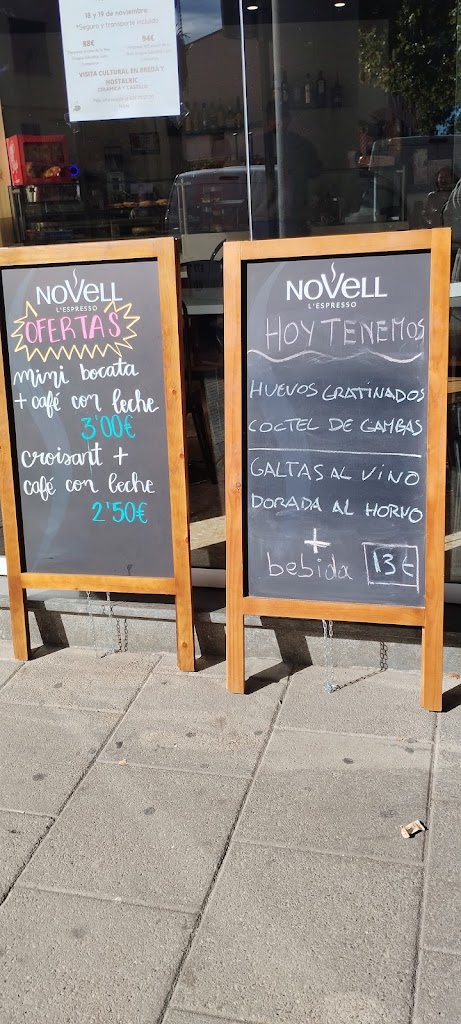 18 y 19 de noviembre
*Seguro y transporte incluido
88€
94€
VISITA CULTURAL EN BREDA Y
HOSTALRIC
CERÁMICA Y CASTILLO
NOVELL
L'ESPRESSO
OFERTAS
mini bocata
+ café con leche
3'00€
croisant +
café con leche
2'50€
NOVELL
L'ESPRESSO
HOY TENEMOS
HUEVOS GRATINADOS
COCTEL DE GAMBAS
GALTAS AL VINO
DORADA AL HORNO
+
bebida 13€